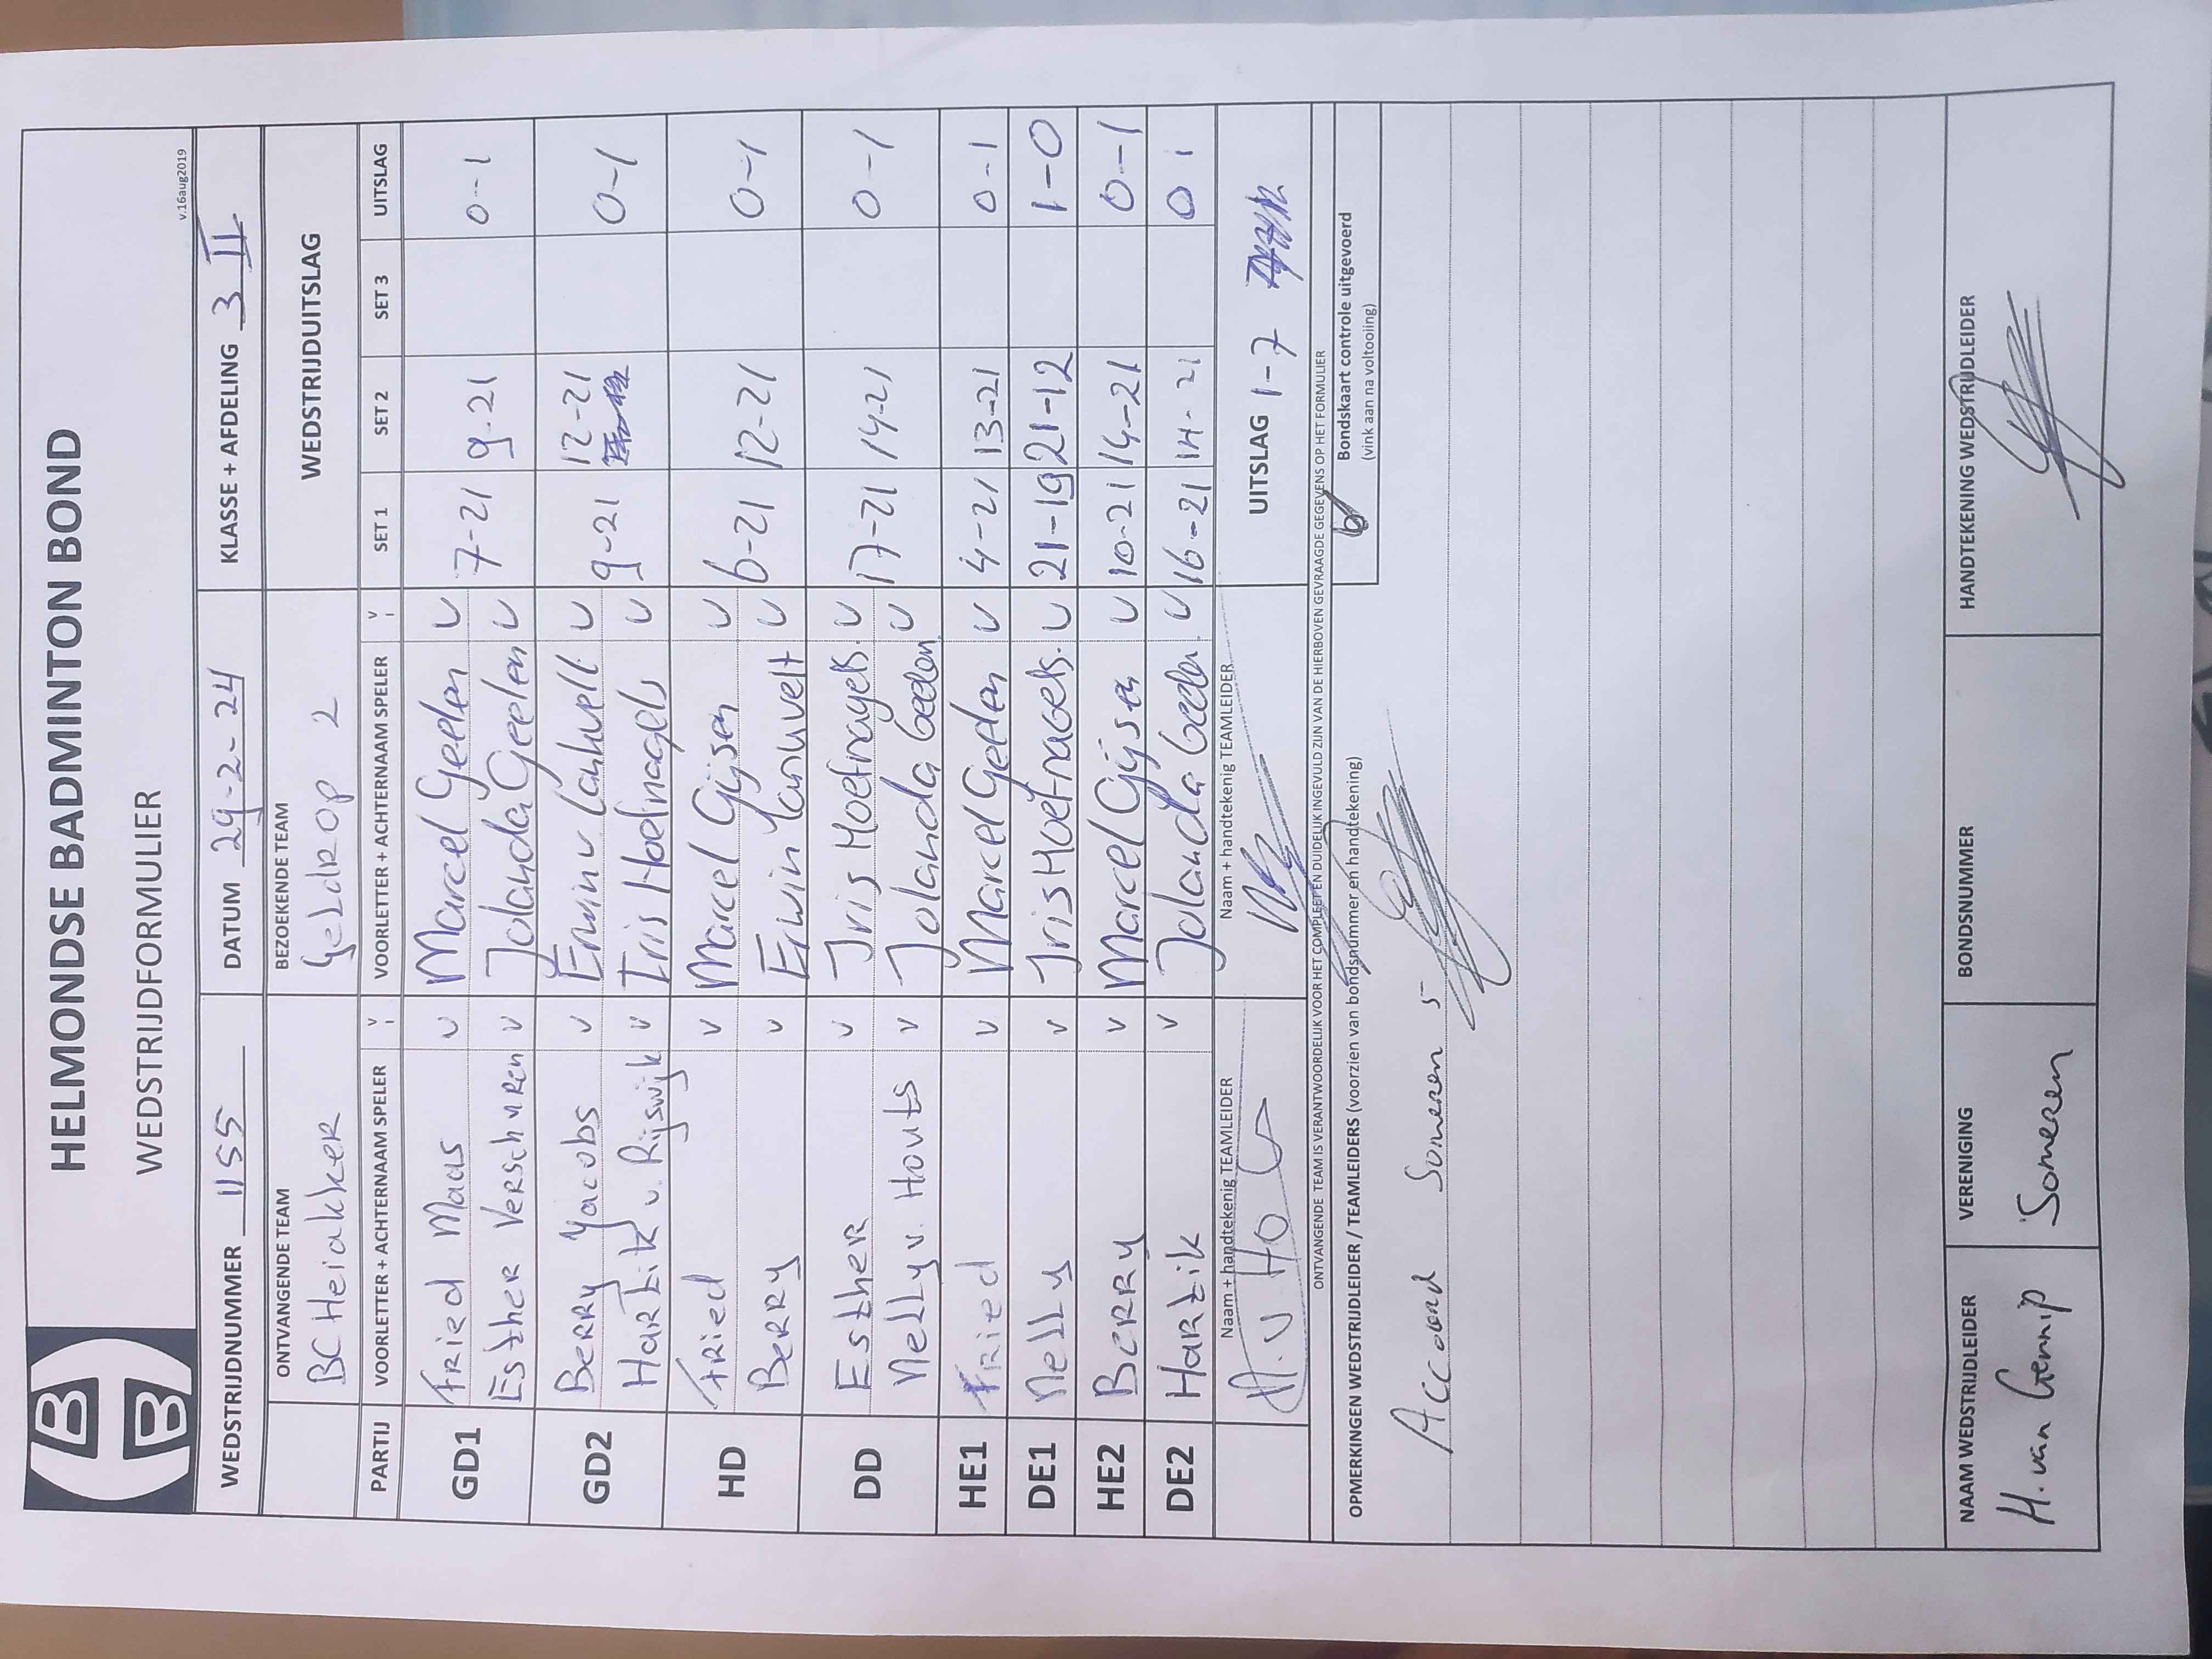 HELMONDSE BADMINTON BOND
WEDSTRIJDFORMULIER
v.16aug2019
WEDSTRIJDNUMMER 1155 DATUM 29-2-24 KLASSE + AFDELING 3 II
ONTVANGENDE TEAM BEZOEKENDE TEAM WEDSTRIJDUITSLAG
BC Heiakker Geldrop 2
PARTIJ VOORLETTER + ACHTERNAAM SPELER V VOORLETTER + ACHTERNAAM SPELER V SET 1 SET 2 SET 3 UITSLAG
GD1 Fried Maas v Marcel Geelen v 7-21 9-21 0-1
Esther Verschuren v Jolanda Geelen v
GD2 Berry Jacobs v Erwin v Lanvelt v 9-21 12-21 0-1
Hartik v. Rijswijk v Iris Hoefnagels v
HD Fried v Marcel Gijsen v 6-21 12-21 0-1
Berry v Erwin Lanvelt v
DD Esther v Iris Hoefnagels. v 17-21 14-21 0-1
Nelly v. Houts v Jolanda Geelen v
HE1 Fried v Marcel Geelen v 4-21 13-21 0-1
DE1 Nelly v Iris Hoefnagels. v 21-19 21-12 1-0
HE2 Berry v Marcel Gijsen v 10-21 14-21 0-1
DE2 Hartik v Jolanda Geelen v 16-21 14-21 0 1
Naam + handtekenig TEAMLEIDER Naam + handtekenig TEAMLEIDER UITSLAG 1-7
ONTVANGENDE TEAM IS VERANTWOORDELIJK VOOR HET COMPLEET EN DUIDELIJK INGEVULD ZIJN VAN DE HIERBOVEN GEVRAAGDE GEGEVENS OP HET FORMULIER
OPMERKINGEN WEDSTRIJDLEIDER / TEAMLEIDERS (voorzien van bondsnummer en handtekening) Bondskaart controle uitgevoerd
(vink aan na voltooiing)
Accoord Someren 5
NAAM WEDSTRIJDLEIDER VERENIGING BONDSNUMMER HANDTEKENING WEDSTRIJDLEIDER
H. van Gennip Someren